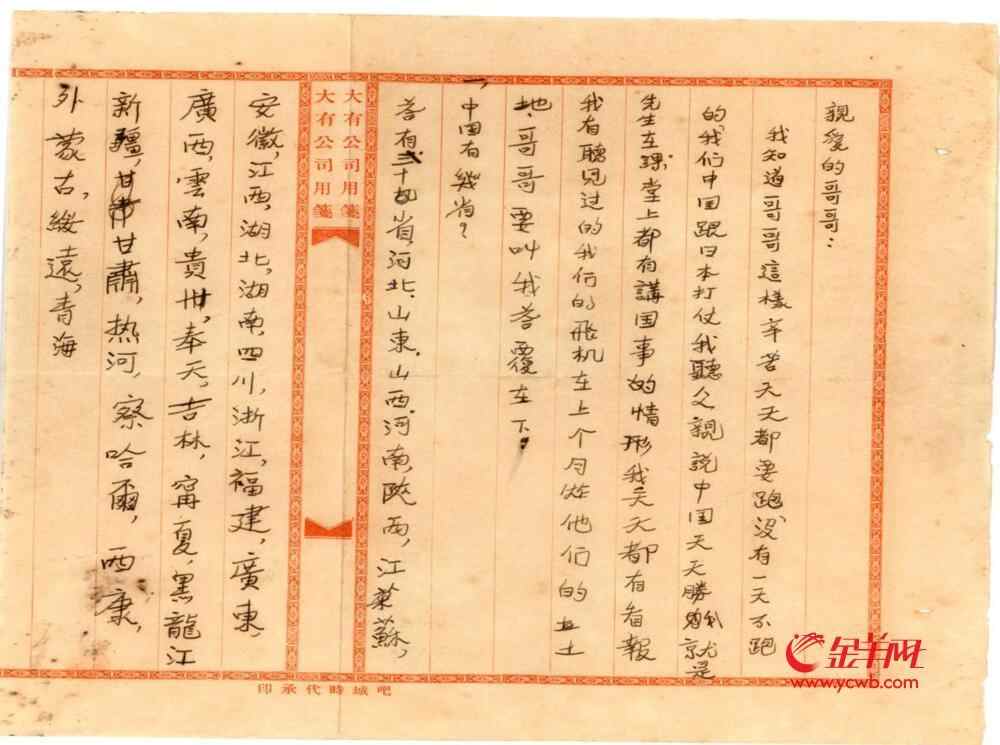 親愛的哥哥：
我知道哥哥這樣辛苦天天都要跑，没有一天不跑
的，我们中国跟日本打仗我聽父親説中国天天勝就是
先生在課堂上都有講国事的情形我天天都有看報
我有聽見过的我们的飛机在上个月炸他们的土
地，哥哥要叫我答覆在下：
一，中国有幾省？
答有二十九省，河北，山東，山西，河南，陜西，江蘇，
大有公司用箋
大有公司用箋
安徽，江西，湖北，湖南，四川，浙江，福建，廣東，
廣西，雲南，貴州，奉天，吉林，甯夏，黑龍江
新疆，甘肅，热河，察哈爾，西康，
外蒙古，綏遠，青海
吧城時代承印
金羊网
www.ycwb.com